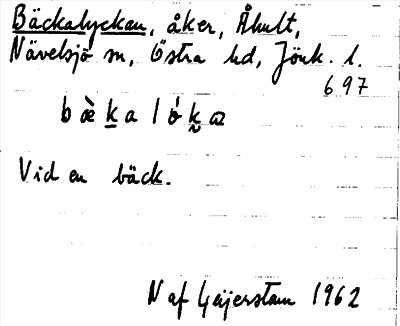 Bäckalyckan, åker, Åhult,
Nävelsjö sn, Östra hd, Jönk. l.
697
b æ̀ k̲ a l ó k̰ aꝛ
Vid en bäck.
N af Geijerstam 1962